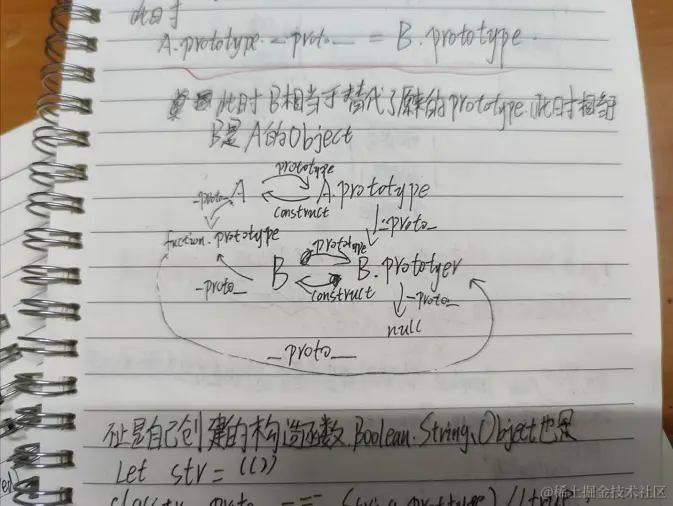 此时
A.prototype.__proto__ = B.prototype.
此时B相当于替代了原来的prototype.此时相当于
B是A的Object
prototype
__proto__ A A.prototype
construct
function.prototype __proto__
prototype
__proto__ B B.prototyer
construct __proto__
null
__proto__
不止是自己创建的构造函数.Boolean.String、Object也是
let str = (())
@稀土掘金技术社区